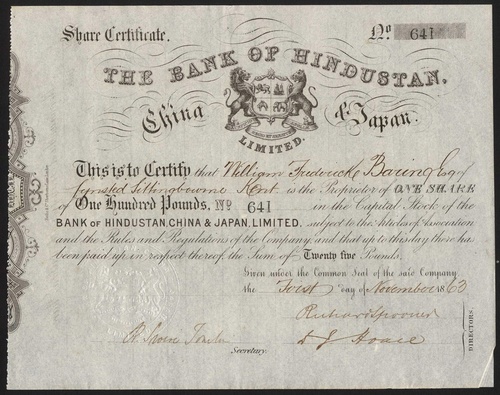 Share Certificate.
No 641
THE BANK OF HINDUSTAN,
China & Japan.
LIMITED.
This is to Certify that William Frederick Baring Esq of
Lynsted Sittingbourne Kent is the Proprietor of ONE SHARE
of One Hundred Pounds, No 641 in the Capital Stock of the
BANK OF HINDUSTAN, CHINA & JAPAN, LIMITED. subject to the Articles of Association
and the Rules and Regulations of the Company, and that up to this day there has
been paid up in respect thereof, the Sum of Twenty five Pounds.
Given under the Common Seal of the said Company,
the First day of November 1863
Richard Spooner
Secretary.
DIRECTORS.